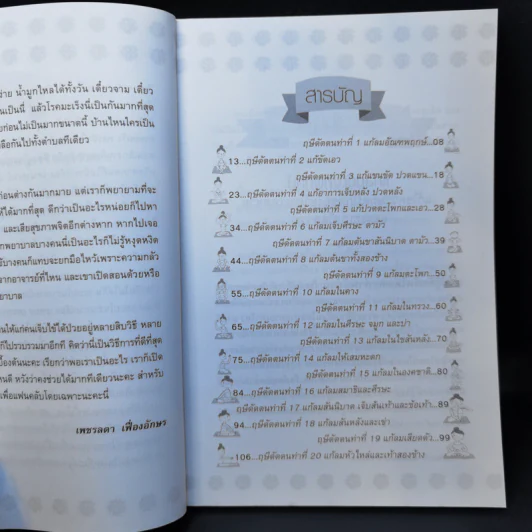 ง่าย น้ำมูกไหลได้ทั้งวัน เดี๋ยวจาม เดี๋ยว
นเป็นนี่ แล้วโรคมะเร็งนี่เป็นกันมากที่สุด
ยก่อนไม่เป็นมากขนาดนี้ บ้านไหนใครเป็น
ลือกันไปทั้งตำบลทีเดียว
ก่อนต่างกันมากมาย แต่เราก็พยายามที่จะ
ห้ได้มากที่สุด ดีกว่าเป็นอะไรหน่อยก็ไปหา
และเสียสุขภาพจิตอีกต่างหาก หากไปเจอ
กพยาบาลบางคนนี่เป็นอะไรก็ไม่รู้หงุดหงิด
ับบางคนก็แทบจะยกมือไหว้เพราะความกลัว
จากอาจารย์ที่ไหน และเขาเปิดสอนด้วยหรือ
ยาบาล
นให้แก่คนเจ็บใช้ได้ป่วยอยู่หลายสิบวิธี หลาย
ก็ไปรวบรวมมาอีกที คิดว่านี่เป็นวิธีการที่ดีที่สุด
บื้องต้นนะคะ เรียกว่าพอเราเป็นอะไร เราก็เปิด
หนดี หวังว่าคงช่วยได้มากทีเดียวนะคะ สำหรับ
เพื่อแฟนคลับโดยเฉพาะนะคะนี่
เพชรลดา เฟื่องอักษร
สารบัญ
ฤษีดัดตนท่าที่ 1 แก้ลมอัณฑพฤกษ์...08
13...ฤษีดัดตนท่าที่ 2 แก้ขัดเอว
ฤษีดัดตนท่าที่ 3 แก้แขนขัด ปวดแขน...18
23...ฤษีดัดตนท่าที่ 4 แก้อาการเจ็บหลัง ปวดหลัง
ฤษีดัดตนท่าที่ 5 แก้ปวดตะโพกและเอว...28
34...ฤษีดัดตนท่าที่ 6 แก้ลมเจ็บศีรษะ ตามัว
ฤษีดัดตนท่าที่ 7 แก้ลมต้นขาสันนิบาต ตามัว...39
44...ฤษีดัดตนท่าที่ 8 แก้ลมต้นขาทั้งสองข้าง
ฤษีดัดตนท่าที่ 9 แก้ลมตะโพก...50
55...ฤษีดัดตนท่าที่ 10 แก้ลมในทวง
ฤษีดัดตนท่าที่ 11 แก้ลมในทรวง...60
65...ฤษีดัดตนท่าที่ 12 แก้ลมในศีรษะ จมูก และบ่า
ฤษีดัดตนท่าที่ 13 แก้ลมในไขสันหลัง...70
75...ฤษีดัดตนท่าที่ 14 แก้ลมให้เสมหะตก
ฤษีดัดตนท่าที่ 15 แก้ลมในองคชาติ...80
84...ฤษีดัดตนท่าที่ 16 แก้ลมสมาธิและศีรษะ
ฤษีดัดตนท่าที่ 17 แก้ลมสันนิบาต เจ็บส้นเท้าและข้อเท้า...89
94...ฤษีดัดตนท่าที่ 18 แก้ลมส้นหลังและเข่า
ฤษีดัดตนท่าที่ 19 แก้ลมเสียดตัว...99
106...ฤษีดัดตนท่าที่ 20 แก้ลมทั่วไหล่และเท้าสองข้าง